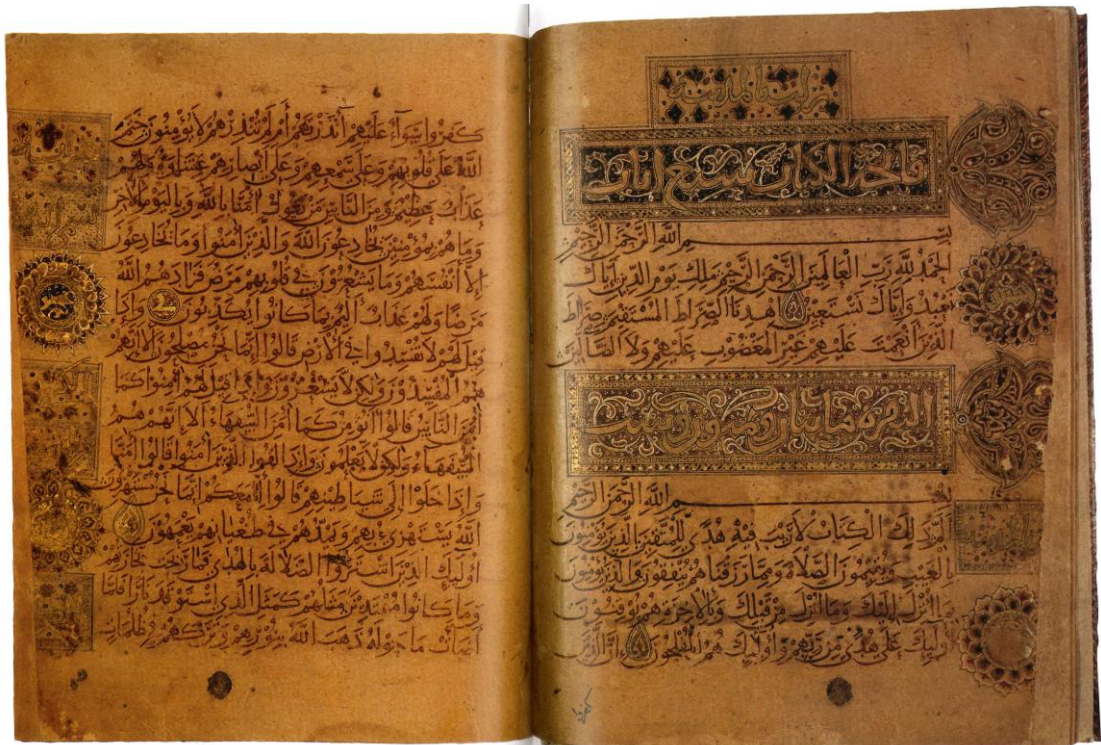 نزلت بالمدينة
فاتحة الكتاب سبع ايات
بِسْمِ اللَّهِ الرَّحْمَنِ الرَّحِيمِ
الْحَمْدُ لِلَّهِ رَبِّ الْعَالَمِينَ الرَّحْمَنِ الرَّحِيمِ مَلِكِ يَوْمِ الدِّينِ إِيَّاكَ
نَعْبُدُ وَإِيَّاكَ نَسْتَعِينُ اهْدِنَا الصِّرَاطَ الْمُسْتَقِيمَ صِرَاطَ
الَّذِينَ أَنْعَمْتَ عَلَيْهِمْ غَيْرِ الْمَغْضُوبِ عَلَيْهِمْ وَلَا الضَّالِّينَ
البقرة مائتان وثمانون وست
بِسْمِ اللَّهِ الرَّحْمَنِ الرَّحِيمِ
الم ذَلِكَ الْكِتَابُ لَا رَيْبَ فِيهِ هُدًى لِلْمُتَّقِينَ الَّذِينَ يُؤْمِنُونَ
بِالْغَيْبِ وَيُقِيمُونَ الصَّلَاةَ وَمِمَّا رَزَقْنَاهُمْ يُنْفِقُونَ وَالَّذِينَ يُؤْمِنُونَ
بِمَا أُنْزِلَ إِلَيْكَ وَمَا أُنْزِلَ مِنْ قَبْلِكَ وَبِالْآخِرَةِ هُمْ يُوقِنُونَ
أُولَئِكَ عَلَى هُدًى مِنْ رَبِّهِمْ وَأُولَئِكَ هُمُ الْمُفْلِحُونَ إِنَّ الَّذِينَ
كفروا
كَفَرُوا سَوَاءٌ عَلَيْهِمْ أَأَنْذَرْتَهُمْ أَمْ لَمْ تُنْذِرْهُمْ لَا يُؤْمِنُونَ خَتَمَ
اللَّهُ عَلَى قُلُوبِهِمْ وَعَلَى سَمْعِهِمْ وَعَلَى أَبْصَارِهِمْ غِشَاوَةٌ وَلَهُمْ
عَذَابٌ عَظِيمٌ وَمِنَ النَّاسِ مَنْ يَقُولُ آمَنَّا بِاللَّهِ وَبِالْيَوْمِ الْآخِرِ
وَمَا هُمْ بِمُؤْمِنِينَ يُخَادِعُونَ اللَّهَ وَالَّذِينَ آمَنُوا وَمَا يُخَادِعُونَ
إِلَّا أَنْفُسَهُمْ وَمَا يَشْعُرُونَ فِي قُلُوبِهِمْ مَرَضٌ فَزَادَهُمُ اللَّهُ
مَرَضًا وَلَهُمْ عَذَابٌ أَلِيمٌ بِمَا كَانُوا يُكَذِّبُونَ وَإِذَا
قِيلَ لَهُمْ لَا تُفْسِدُوا فِي الْأَرْضِ قَالُوا إِنَّمَا نَحْنُ مُصْلِحُونَ أَلَا إِنَّهُمْ
هُمُ الْمُفْسِدُونَ وَلَكِنْ لَا يَشْعُرُونَ وَإِذَا قِيلَ لَهُمْ آمِنُوا كَمَا
آمَنَ النَّاسُ قَالُوا أَنُؤْمِنُ كَمَا آمَنَ السُّفَهَاءُ أَلَا إِنَّهُمْ هُمُ
السُّفَهَاءُ وَلَكِنْ لَا يَعْلَمُونَ وَإِذَا لَقُوا الَّذِينَ آمَنُوا قَالُوا آمَنَّا
وَإِذَا خَلَوْا إِلَى شَيَاطِينِهِمْ قَالُوا إِنَّا مَعَكُمْ إِنَّمَا نَحْنُ مُسْتَهْزِؤُنَ
اللَّهُ يَسْتَهْزِئُ بِهِمْ وَيَمُدُّهُمْ فِي طُغْيَانِهِمْ يَعْمَهُونَ
أُولَئِكَ الَّذِينَ اشْتَرَوُا الضَّلَالَةَ بِالْهُدَى فَمَا رَبِحَتْ تِجَارَتُهُمْ
وَمَا كَانُوا مُهْتَدِينَ مَثَلُهُمْ كَمَثَلِ الَّذِي اسْتَوْقَدَ نَارًا فَلَمَّا
أَضَاءَتْ مَا حَوْلَهُ ذَهَبَ اللَّهُ بِنُورِهِمْ وَتَرَكَهُمْ فِي ظُلُمَاتٍ